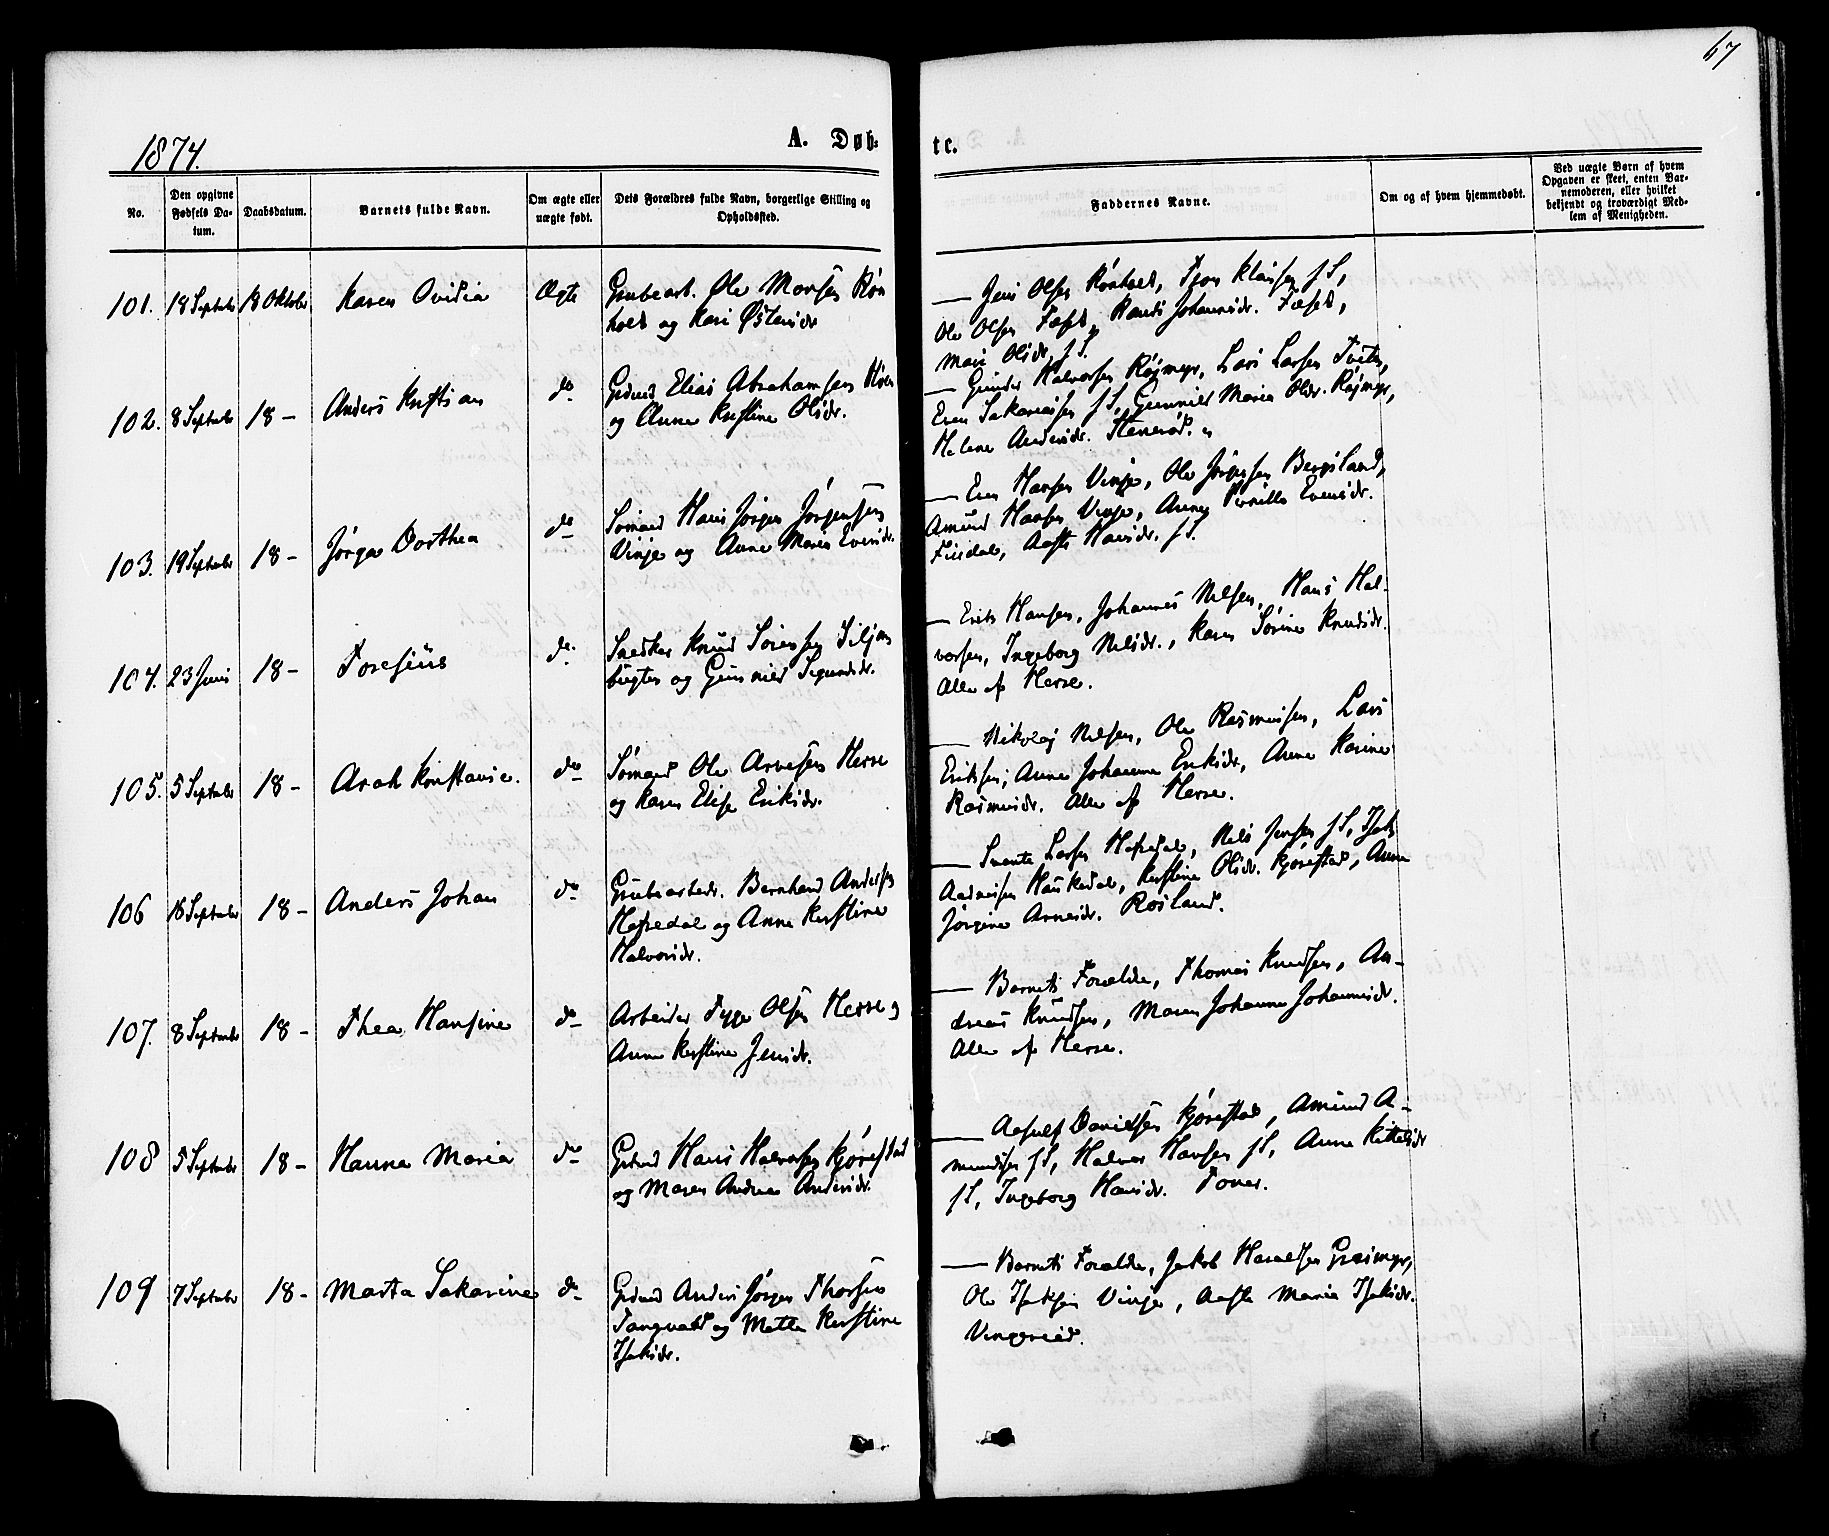 67
1874.
A. Døb-
te.
No.
Den opgivne Fødsels Datum.
Daabsdatum.
Barnets fulde Navn.
Om ægte eller uægte født.
Dets Forældres fulde Navn, borgerlige Stilling og Opholdssted.
Faddernes Navne.
Om og af hvem hjemmedøbt.
Ved uægte Børn af hvem Opgaven er skeet, enten Barnemoderen, eller hvilket bekjendt og troværdigt Medlem af Menigheden.
101. 18 September 18 Oktober Karen Ovidia Ægte Grubearb. Ole Monsen Røn
holt og Kari Østensdr
— Jens Olsen Rønholt, Klausen f S,
Ole Olsen Fosset, Randi Johannesdr. Fosset,
Mari Olsdr. f S.
102. 8 September 18 - Anders Kristian do Grdmd Elias Abrahamsen
og Anne Kirstine Olsdr.
— Gunder Halvorsen Røjmyr, Lars Larsen Tveten,
Even Sakariasen f S, Gunnild Maria Olsdr. Røjmyr,
Helene Andersdr. Stenerød.
103. 19 September 18 - Jørgen Dorthea do Sømand Hans Jørgen Jørgensen
Vinje og Anne Maria Evensdr.
— Even Hansen Vinje, Ole Jørgensen Bergsland,
Amund Hansen Vinje, Anne Pernille Evensdr.
Aaste Hansdr. f S.
104. 23 Juni 18 - Josefius do. Snedker Knud Sørensen Siljan
bugten og Gunnild Sigurdsdr.
— Erik Hansen, Johannes Nilsen, Hans Hal-
vorsen, Ingeborg Nilsdr., Karen Sørine Knudsdr.
Alle af Herre.
105. 5 September 18 - Konstanse. do Sømand Ole Arvesen Herre
og Karen Elise Eriksdr.
— Nikolaj Nilsen, Ole Rasmusen, Lars
Eriksen, Anne Johanne Eriksdr, Anne Karine
Rasmusdr. Alle af Herre.
106 18 September 18 - Anders Johan do Grubearbeidr. Bernhard Andersen
Hafredal og Anne Kirstine
Halvorsdr.
— Larsen Hafredal, Nils Jensen f S, Isak
Haukedal, Kirstine Olsdr. Kjørestad, Anne
Jørgine Arnesdr. Rosland.
107. 8 September 18 - Thea Hansine do Arbeider Tyge Olsen Herre og
Anne Kirstine Jensdr.
— Barnets Forældre, Thomas Knudsen, An-
dreas Knudsen, Maren Johanne Johannesdr.
Alle af Herre.
108 5 September 18 - Hanna Maria do Grdmd Hans Halvorsen Kjørestad
og Maren Andrea Andersdr.
— Danielsen Kjørestad, Amund A-
mundsen f S, Halvor Hansen f S, Anne Kittelsdr
f S, Ingeborg Hansdr.
109 7 September 18 - Marta Sakarine do Grdmd Anders Jørgen Thorsen
Tangvald og Mette Kirstine
Isaksdr.
— Barnets Forældre, Jakob Graemyr,
Ole Isaksen Vinje, Aaste Maria Isaksdr.